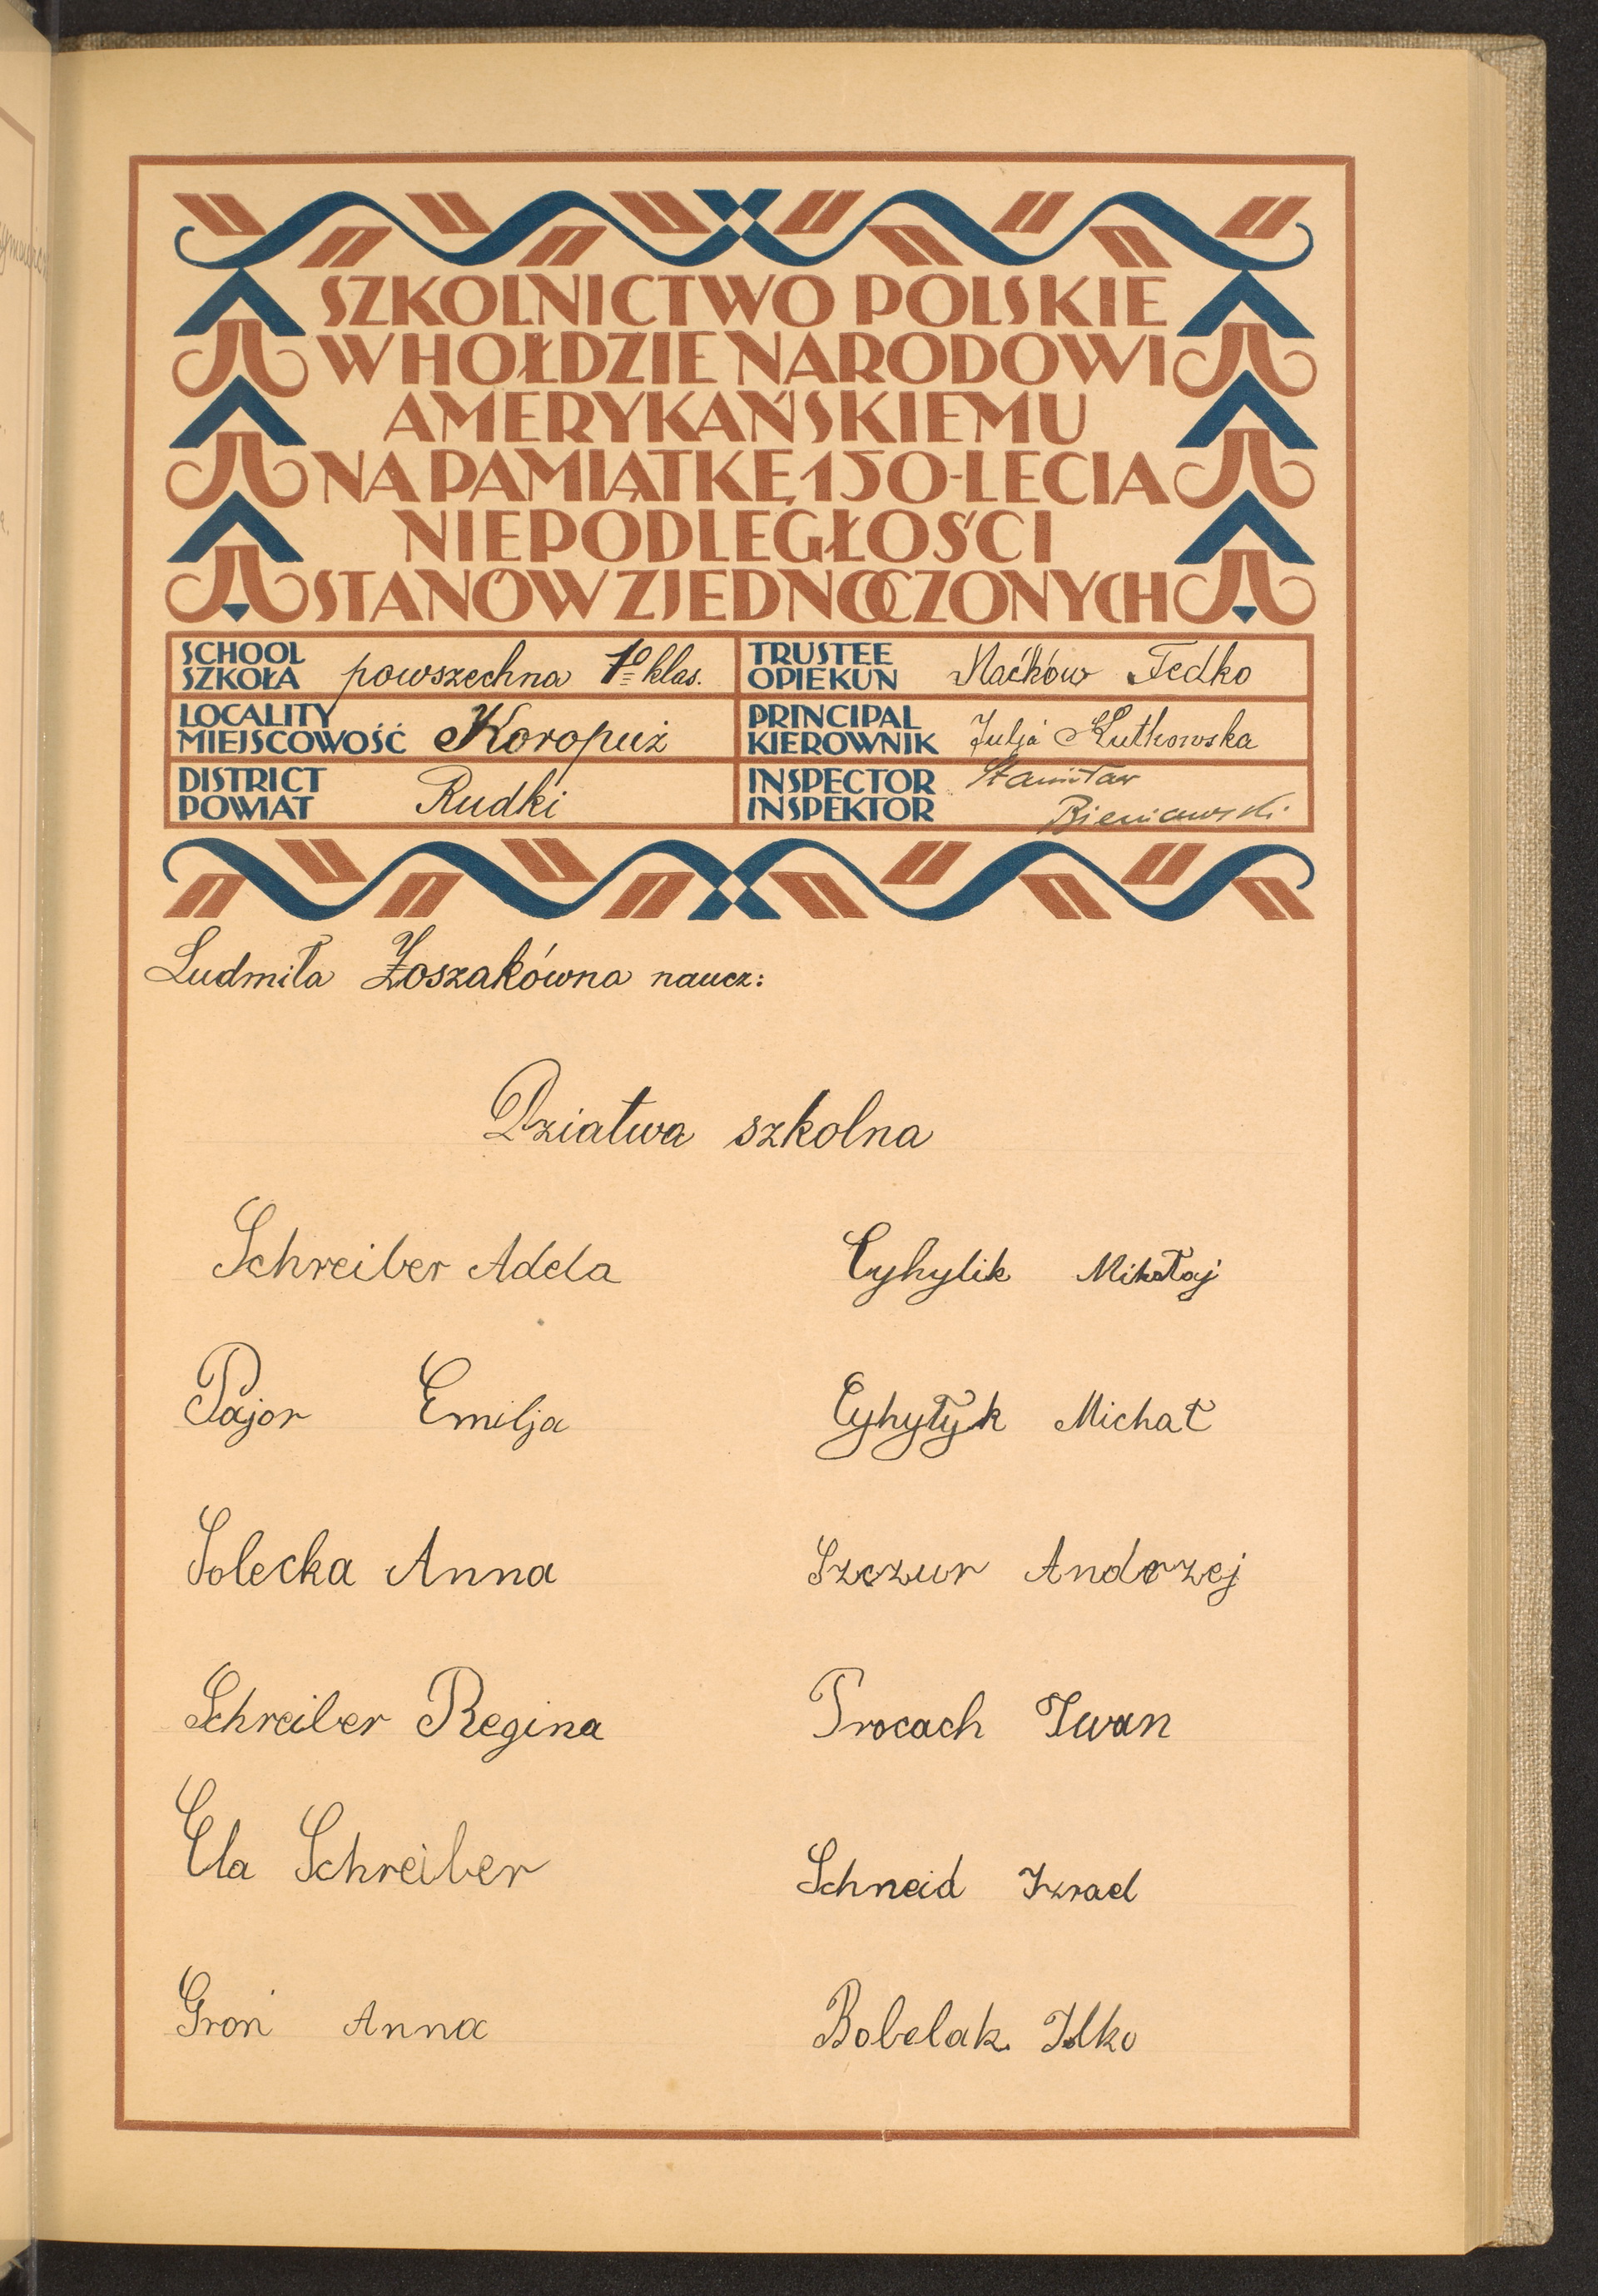 SZKOLNICTWO POLSKIE
W HOŁDZIE NARODOWI
AMERYKAŃSKIEMU
NA PAMIĄTKĘ 150-LECIA
NIEPODLEGŁOŚCI
STANÓW ZJEDNOCZONYCH
SCHOOL
SZKOŁA powszechna 1º klas.
TRUSTEE
OPIEKUN Maćków Fedko
LOCALITY
MIEJSCOWOŚĆ Koropuż
PRINCIPAL
KIEROWNIK Julja Rutkowska
DISTRICT
POWIAT Rudki
INSPECTOR Stanisław
INSPEKTOR Bieniawski
Ludmiła Zoszakówna naucz:
Dziatwa szkolna
Schreiber Adela
Cyhylik Mikołaj
Pajor Emilja
Cyhyłyk Michał
Solecka Anna
Szczur Andrzej
Schreiber Regina
Procach Iwan
Ela Schreiber
Schneid Izrael
Groń Anna
Bobelak Ilko